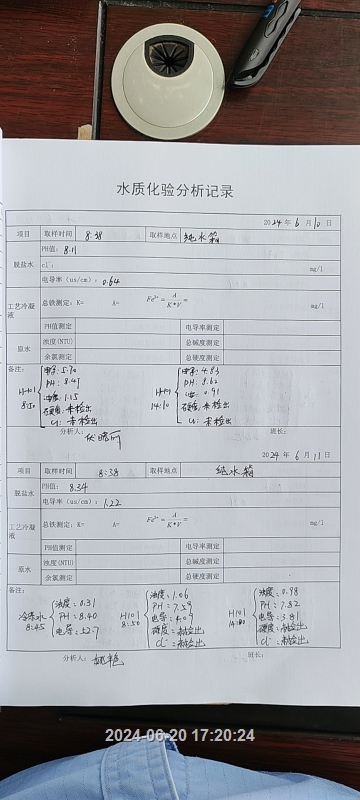 水质化验分析记录
2024年 6月 10日
项目 取样时间 8:38 取样地点 纯水箱
脱盐水 PH值: 8.11
cl⁻: mg/l
电导率（us/cm）: 0.64
工艺冷凝液 总铁测定: K= A= Fe²⁺= A/K*V = mg/l
原水 PH值测定 电导率测定
浊度(NTU) 总碱度测定
余氯测定 总硬度测定
备注:
H101 8:50
电导: 5.70
PH: 8.41
浊度: 1.15
硬度: 未检出
cl: 未检出
14:10
电导: 4.83
PH: 8.62
浊度: 0.91
硬度: 未检出
cl: 未检出
分析人: 班长:
2024年 6月 11日
项目 取样时间 8:38 取样地点 纯水箱
脱盐水 PH值: 8.34
电导率（us/cm）: 1.22
工艺冷凝液 总铁测定: K= A= Fe²⁺= A/K*V = mg/l
原水 PH值测定 电导率测定
浊度(NTU) 总碱度测定
余氯测定 总硬度测定
备注:
冷冻水 8:45
浊度: 0.31
PH: 8.40
电导: 22.7
H101 8:50
浊度: 1.06
PH: 7.59
电导: 4.09
硬度: 未检出
cl⁻: 未检出
H101
浊度: 0.98
PH: 7.82
电导: 3.81
硬度: 未检出
cl⁻: 未检出
分析人: 班长:
2024-06-20 17:20:24